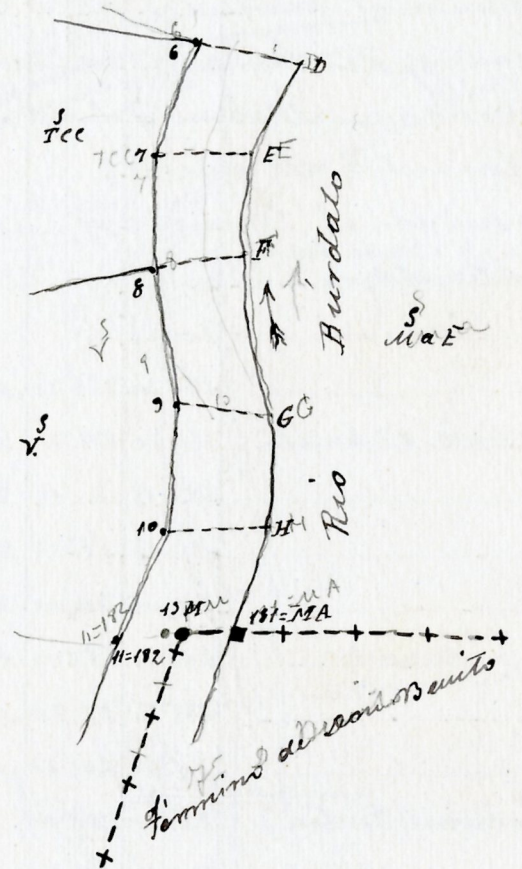 6
D
S
TCC
7
E
F
8
Río Burdalo
S
MaE
9
G
S
V
10
H
13M
181=MA
11=182
11=182
Término de Don Benito